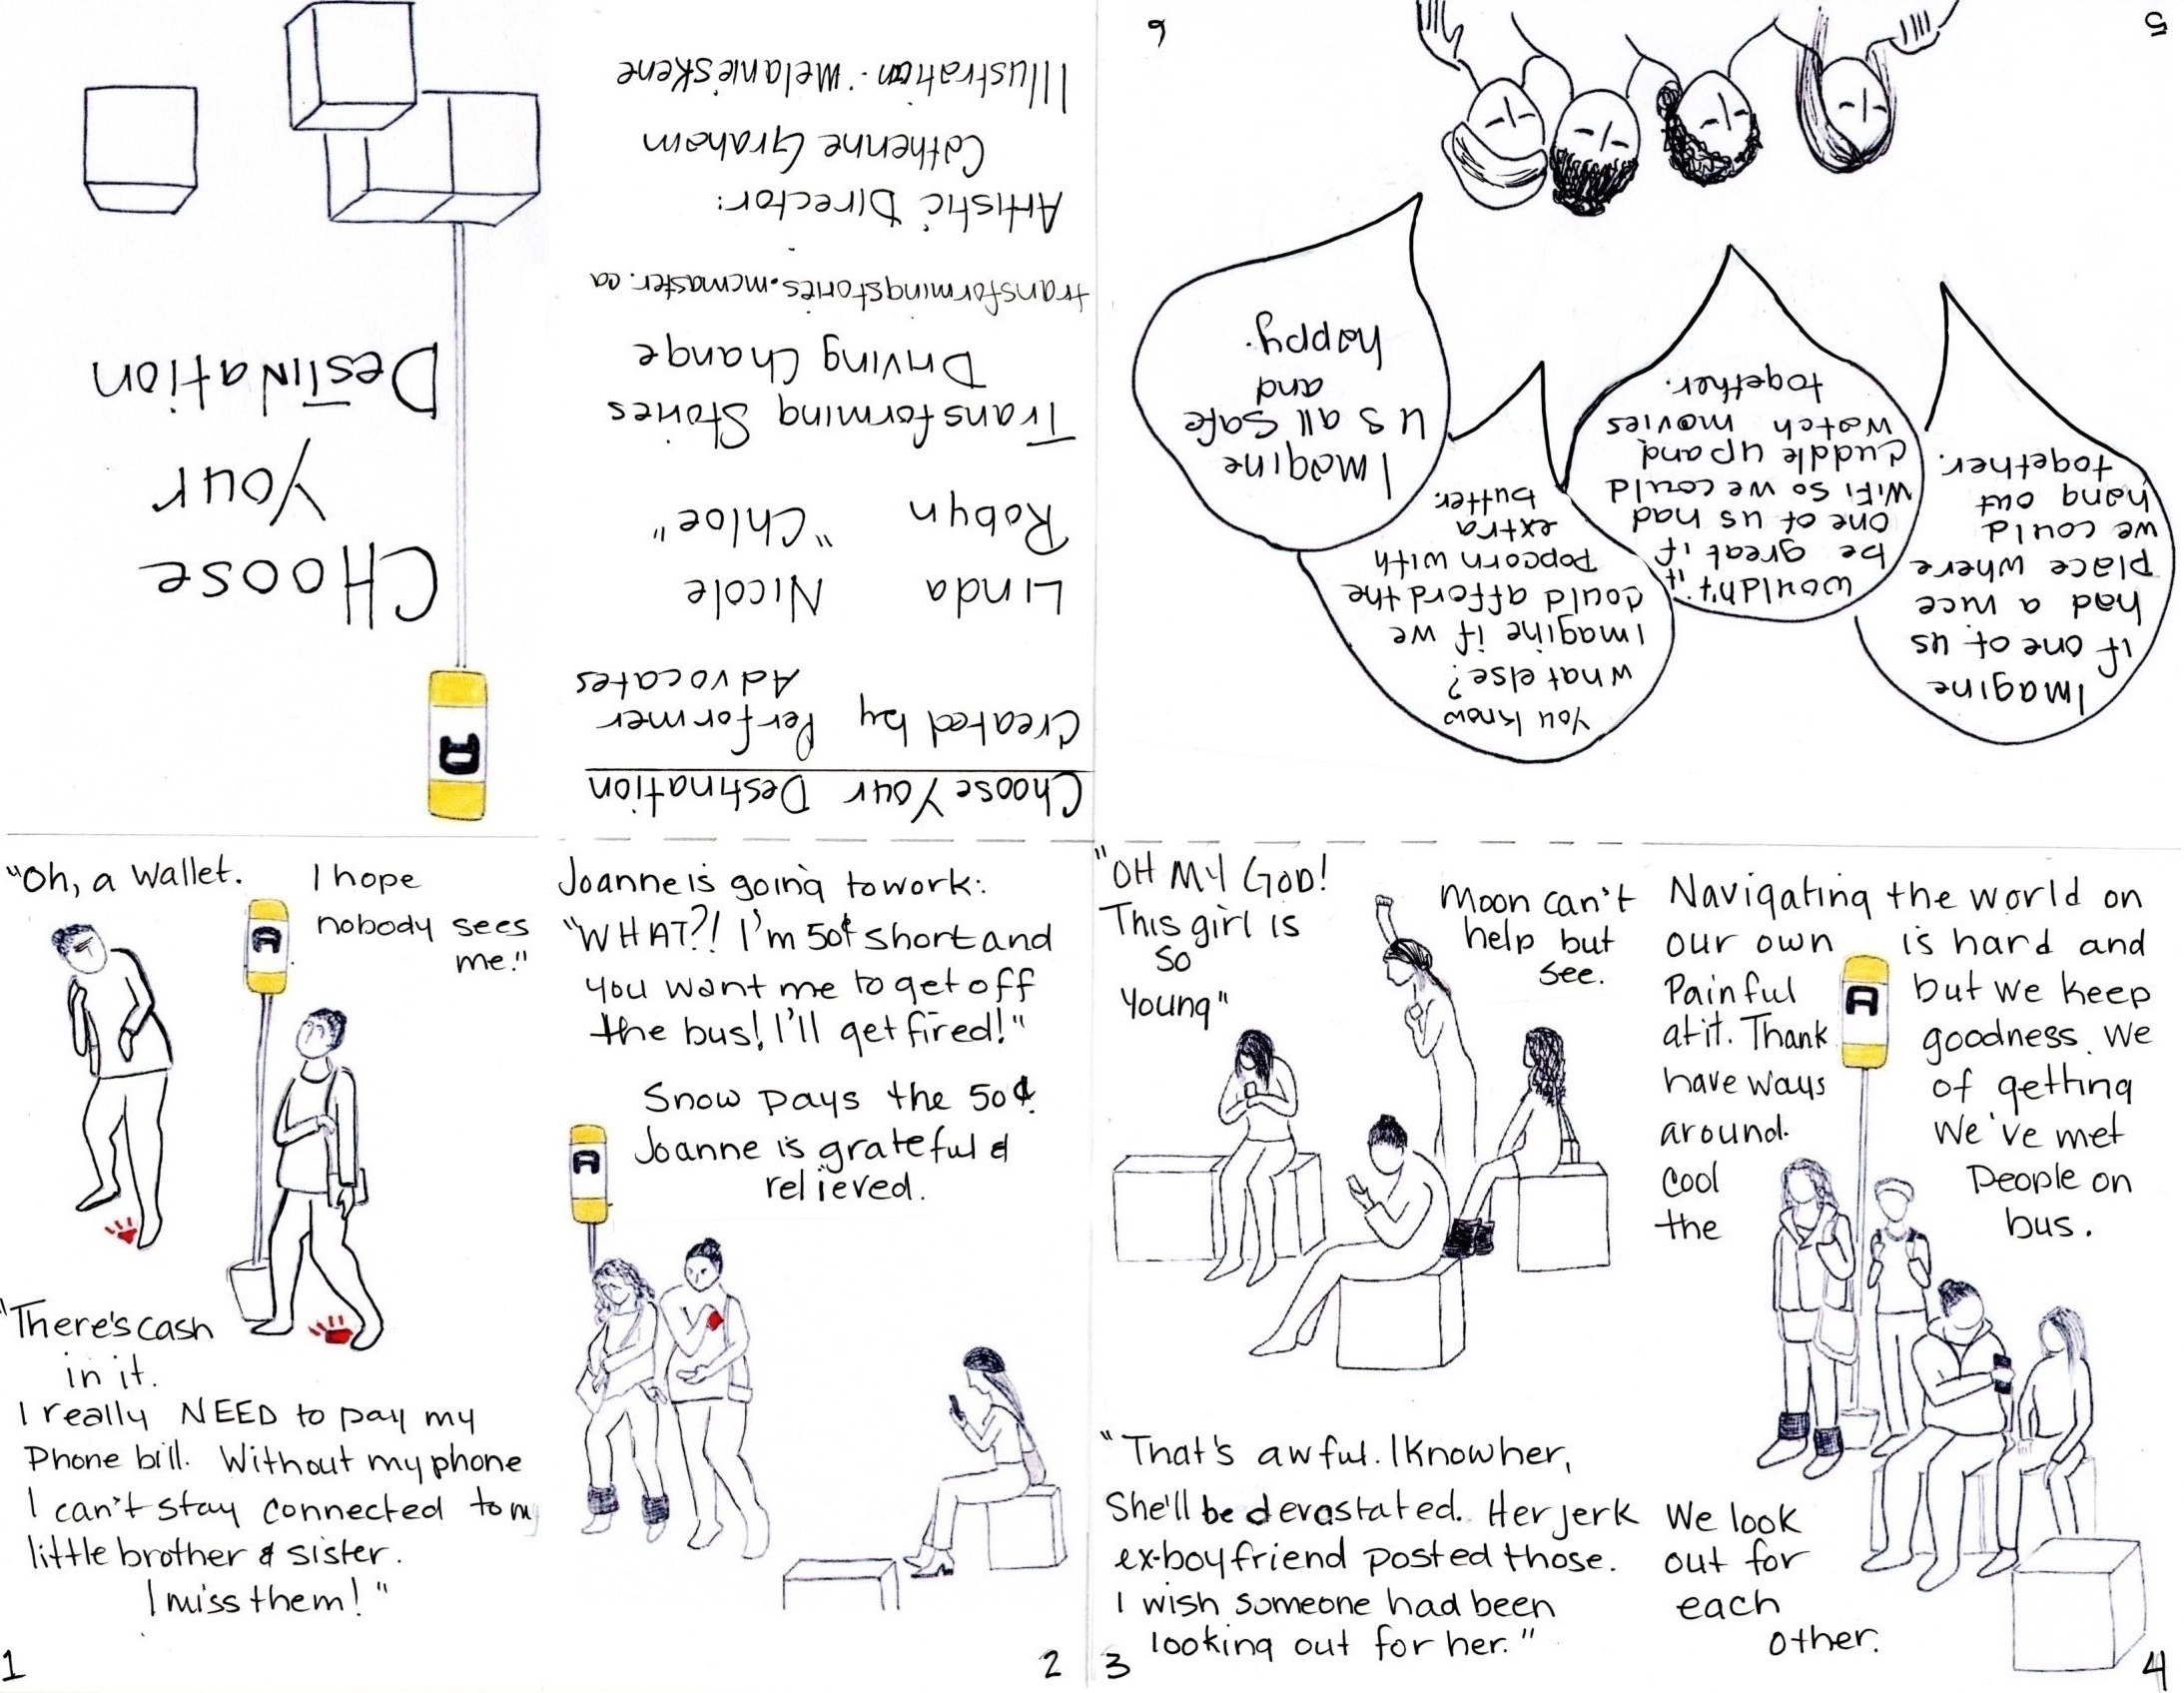 CHoose
Your
Destination
"Oh, a wallet.
I hope
nobody sees
me."
"There's cash
in it.
I really NEED to pay my
Phone bill. Without my phone
I can't stay connected to my
little brother & sister.
I miss them!"
1
Joanne is going to work:
"WHAT?! I'm 50¢ short and
you want me to get off
the bus! I'll get fired!"
Snow pays the 50¢.
Joanne is grateful &
relieved.
2
"OH MY GOD!
This girl is
so
young"
Moon can't
help but
see.
"That's awful. I know her,
She'll be devastated. Her jerk
ex-boyfriend posted those.
I wish someone had been
looking out for her."
3
Navigating the world on
our own is hard and
Painful but we keep
at it. Thank goodness. We
have ways of getting
around. We've met
cool People on
the bus.
We look
out for
each
other.
4
Imagine
if one of us
had a nice
place where
we could
hang out
together.
wouldn't it
be great if
one of us had
WiFi so we could
cuddle up and
watch movies
together.
You know
what else?
Imagine if we
could afford the
popcorn with
extra
butter.
Imagine
us all safe
and
happy.
5
6
Choose Your Destination
Created by Performer
Advocates
Linda Nicole
Robyn "Chloe"
Transforming Stories
Driving Change
transformingstories.mcmaster.ca
Artistic Director:
Catherine Graham
Illustration: Melanie Skene